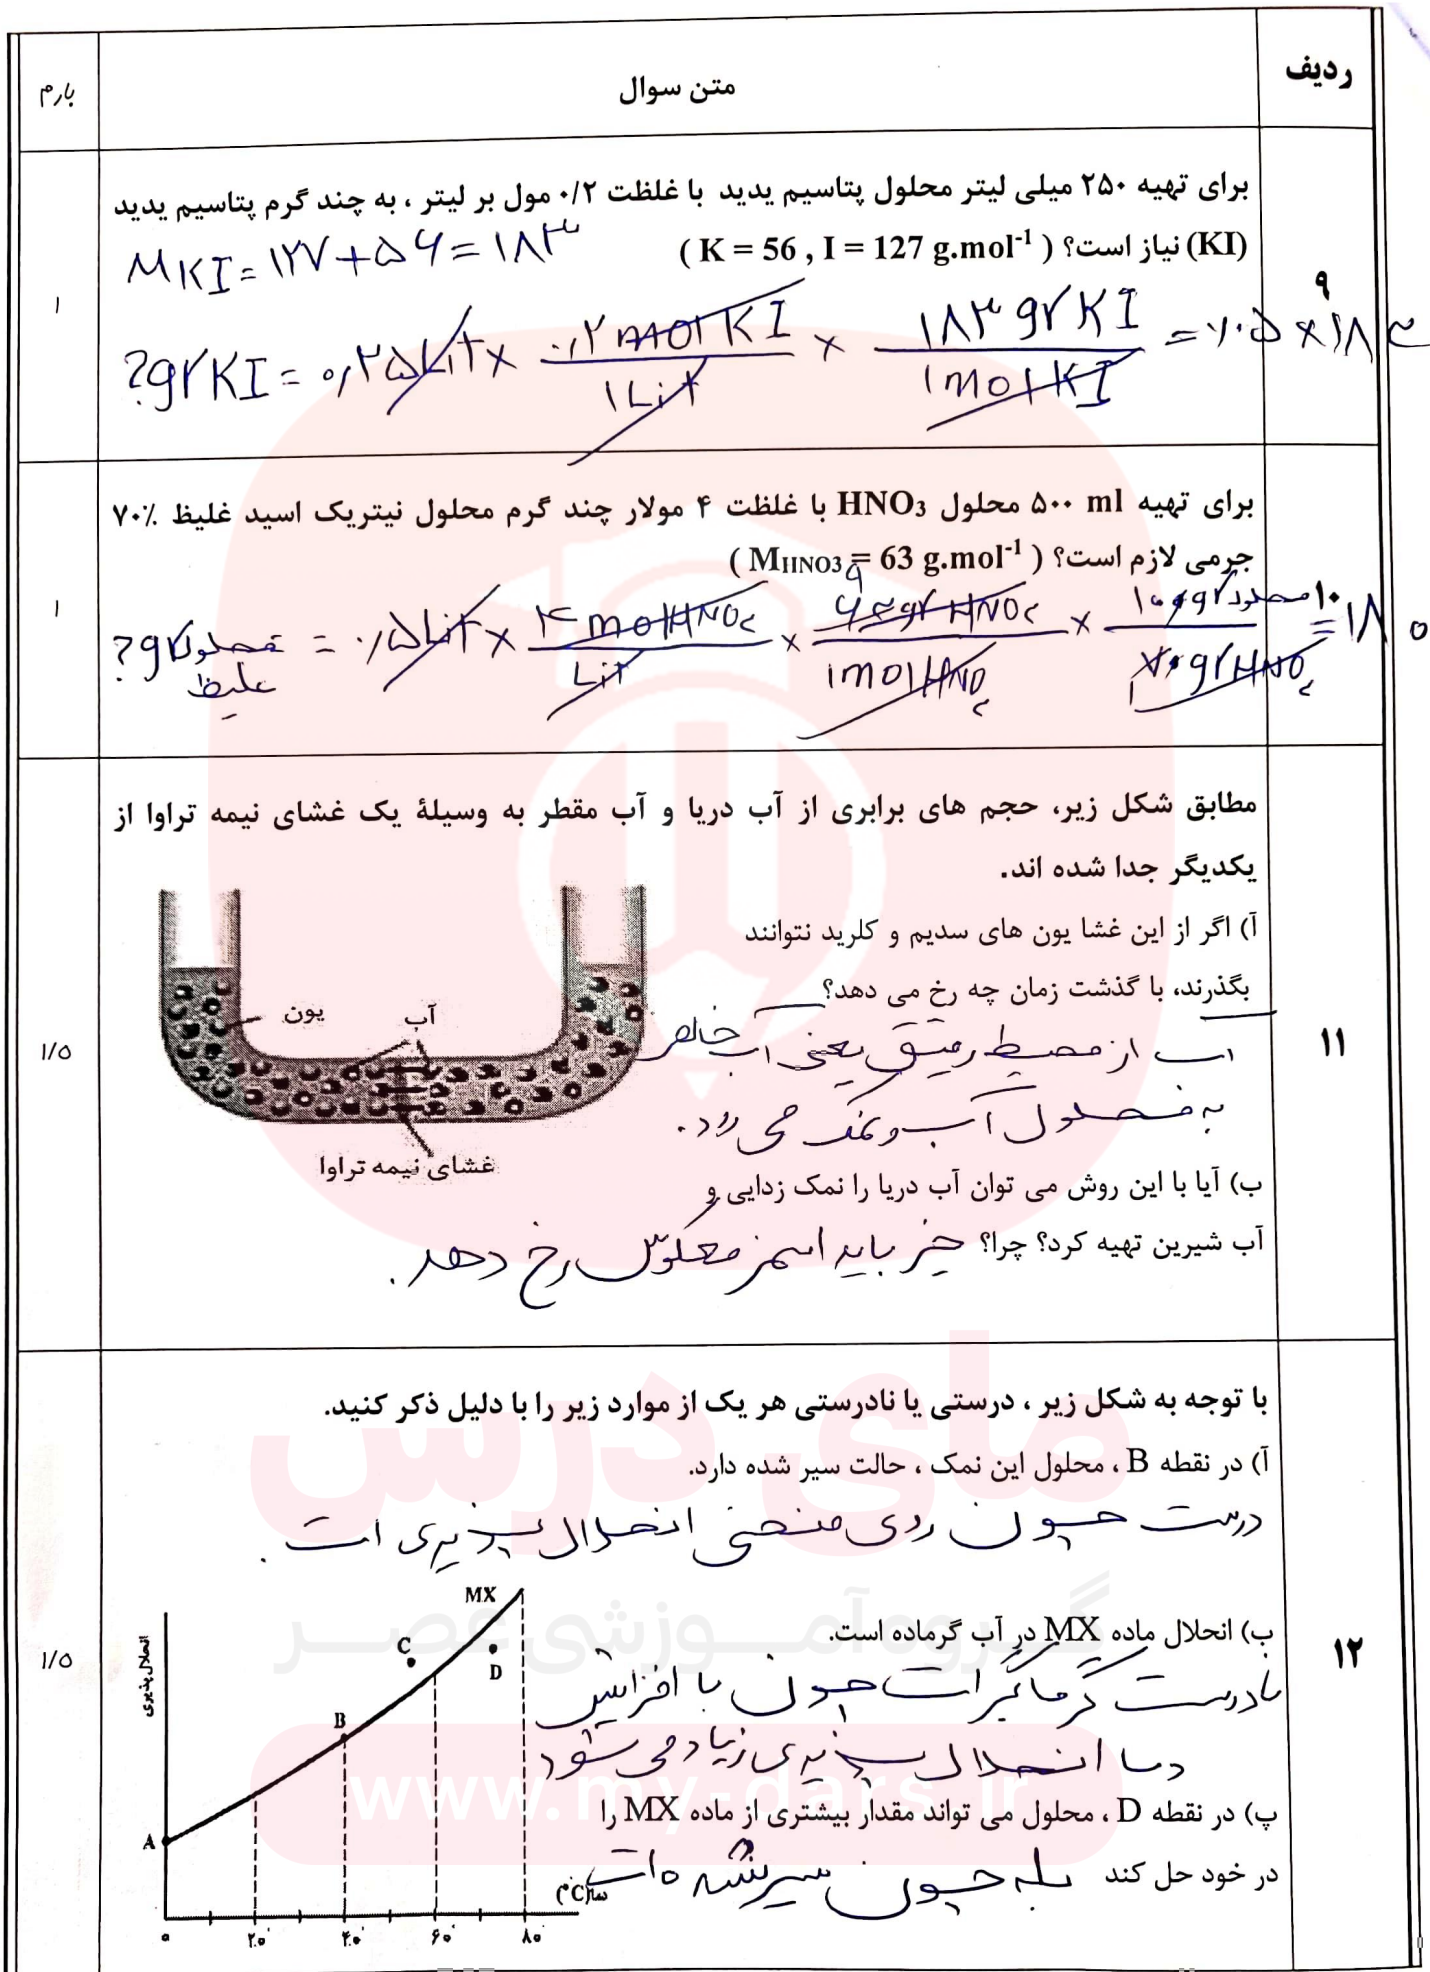 ردیف
متن سوال
بارم
برای تهیه ۲۵۰ میلی لیتر محلول پتاسیم یدید با غلظت ۰/۲ مول بر لیتر ، به چند گرم پتاسیم یدید
(KI) نیاز است؟ ( K = 56 , I = 127 g.mol-1 )
MKI = ۱۲۷+۵۶=۱۸۳
۹
۱
?grKI = ۰,۲۵Lit × ۰,۲molKI / ۱Lit × ۱۸۳grKI / ۱molKI = ۰,۰۵×۱۸۳
برای تهیه ۵۰۰ ml محلول HNO3 با غلظت ۴ مولار چند گرم محلول نیتریک اسید غلیظ ۷۰٪
جرمی لازم است؟ ( MHNO3 = 63 g.mol-1 )
۱۰
۱
?gr محلول غلیظ = ۰,۵Lit × ۴molHNO۳ / Lit × ۶۳grHNO۳ / ۱molHNO۳ × ۱۰۰gr محلول / ۷۰grHNO۳ = ۱۸۰
۹
۱
مطابق شکل زیر، حجم های برابری از آب دریا و آب مقطر به وسیلهٔ یک غشای نیمه تراوا از
یکدیگر جدا شده اند.
آ) اگر از این غشا یون های سدیم و کلرید نتوانند
بگذرند، با گذشت زمان چه رخ می دهد؟
اب از محیط رقیق یعنی آب خالص
به محلول آب و نمک می رود.
یون
آب
غشای نیمه تراوا
۱۱
۱/۵
ب) آیا با این روش می توان آب دریا را نمک زدایی و
آب شیرین تهیه کرد؟ چرا؟ خیر باید اسمز معکوس رخ دهد.
با توجه به شکل زیر ، درستی یا نادرستی هر یک از موارد زیر را با دلیل ذکر کنید.
آ) در نقطه B ، محلول این نمک ، حالت سیر شده دارد.
درست چون روی منحنی انحلال پذیری است.
ب) انحلال ماده MX در آب گرماده است.
نادرست گرماگیر است چون با افزایش
دما انحلال پذیری زیاد می شود
پ) در نقطه D ، محلول می تواند مقدار بیشتری از ماده MX را
در خود حل کند بله چون سیرنشده است
۱۲
۱/۵
انحلال پذیری
MX
C
D
B
A
دما(°C)
۰ ۲۰ ۴۰ ۶۰ ۸۰
مای درس
گروه آموزشی عصر
www.my-dars.ir